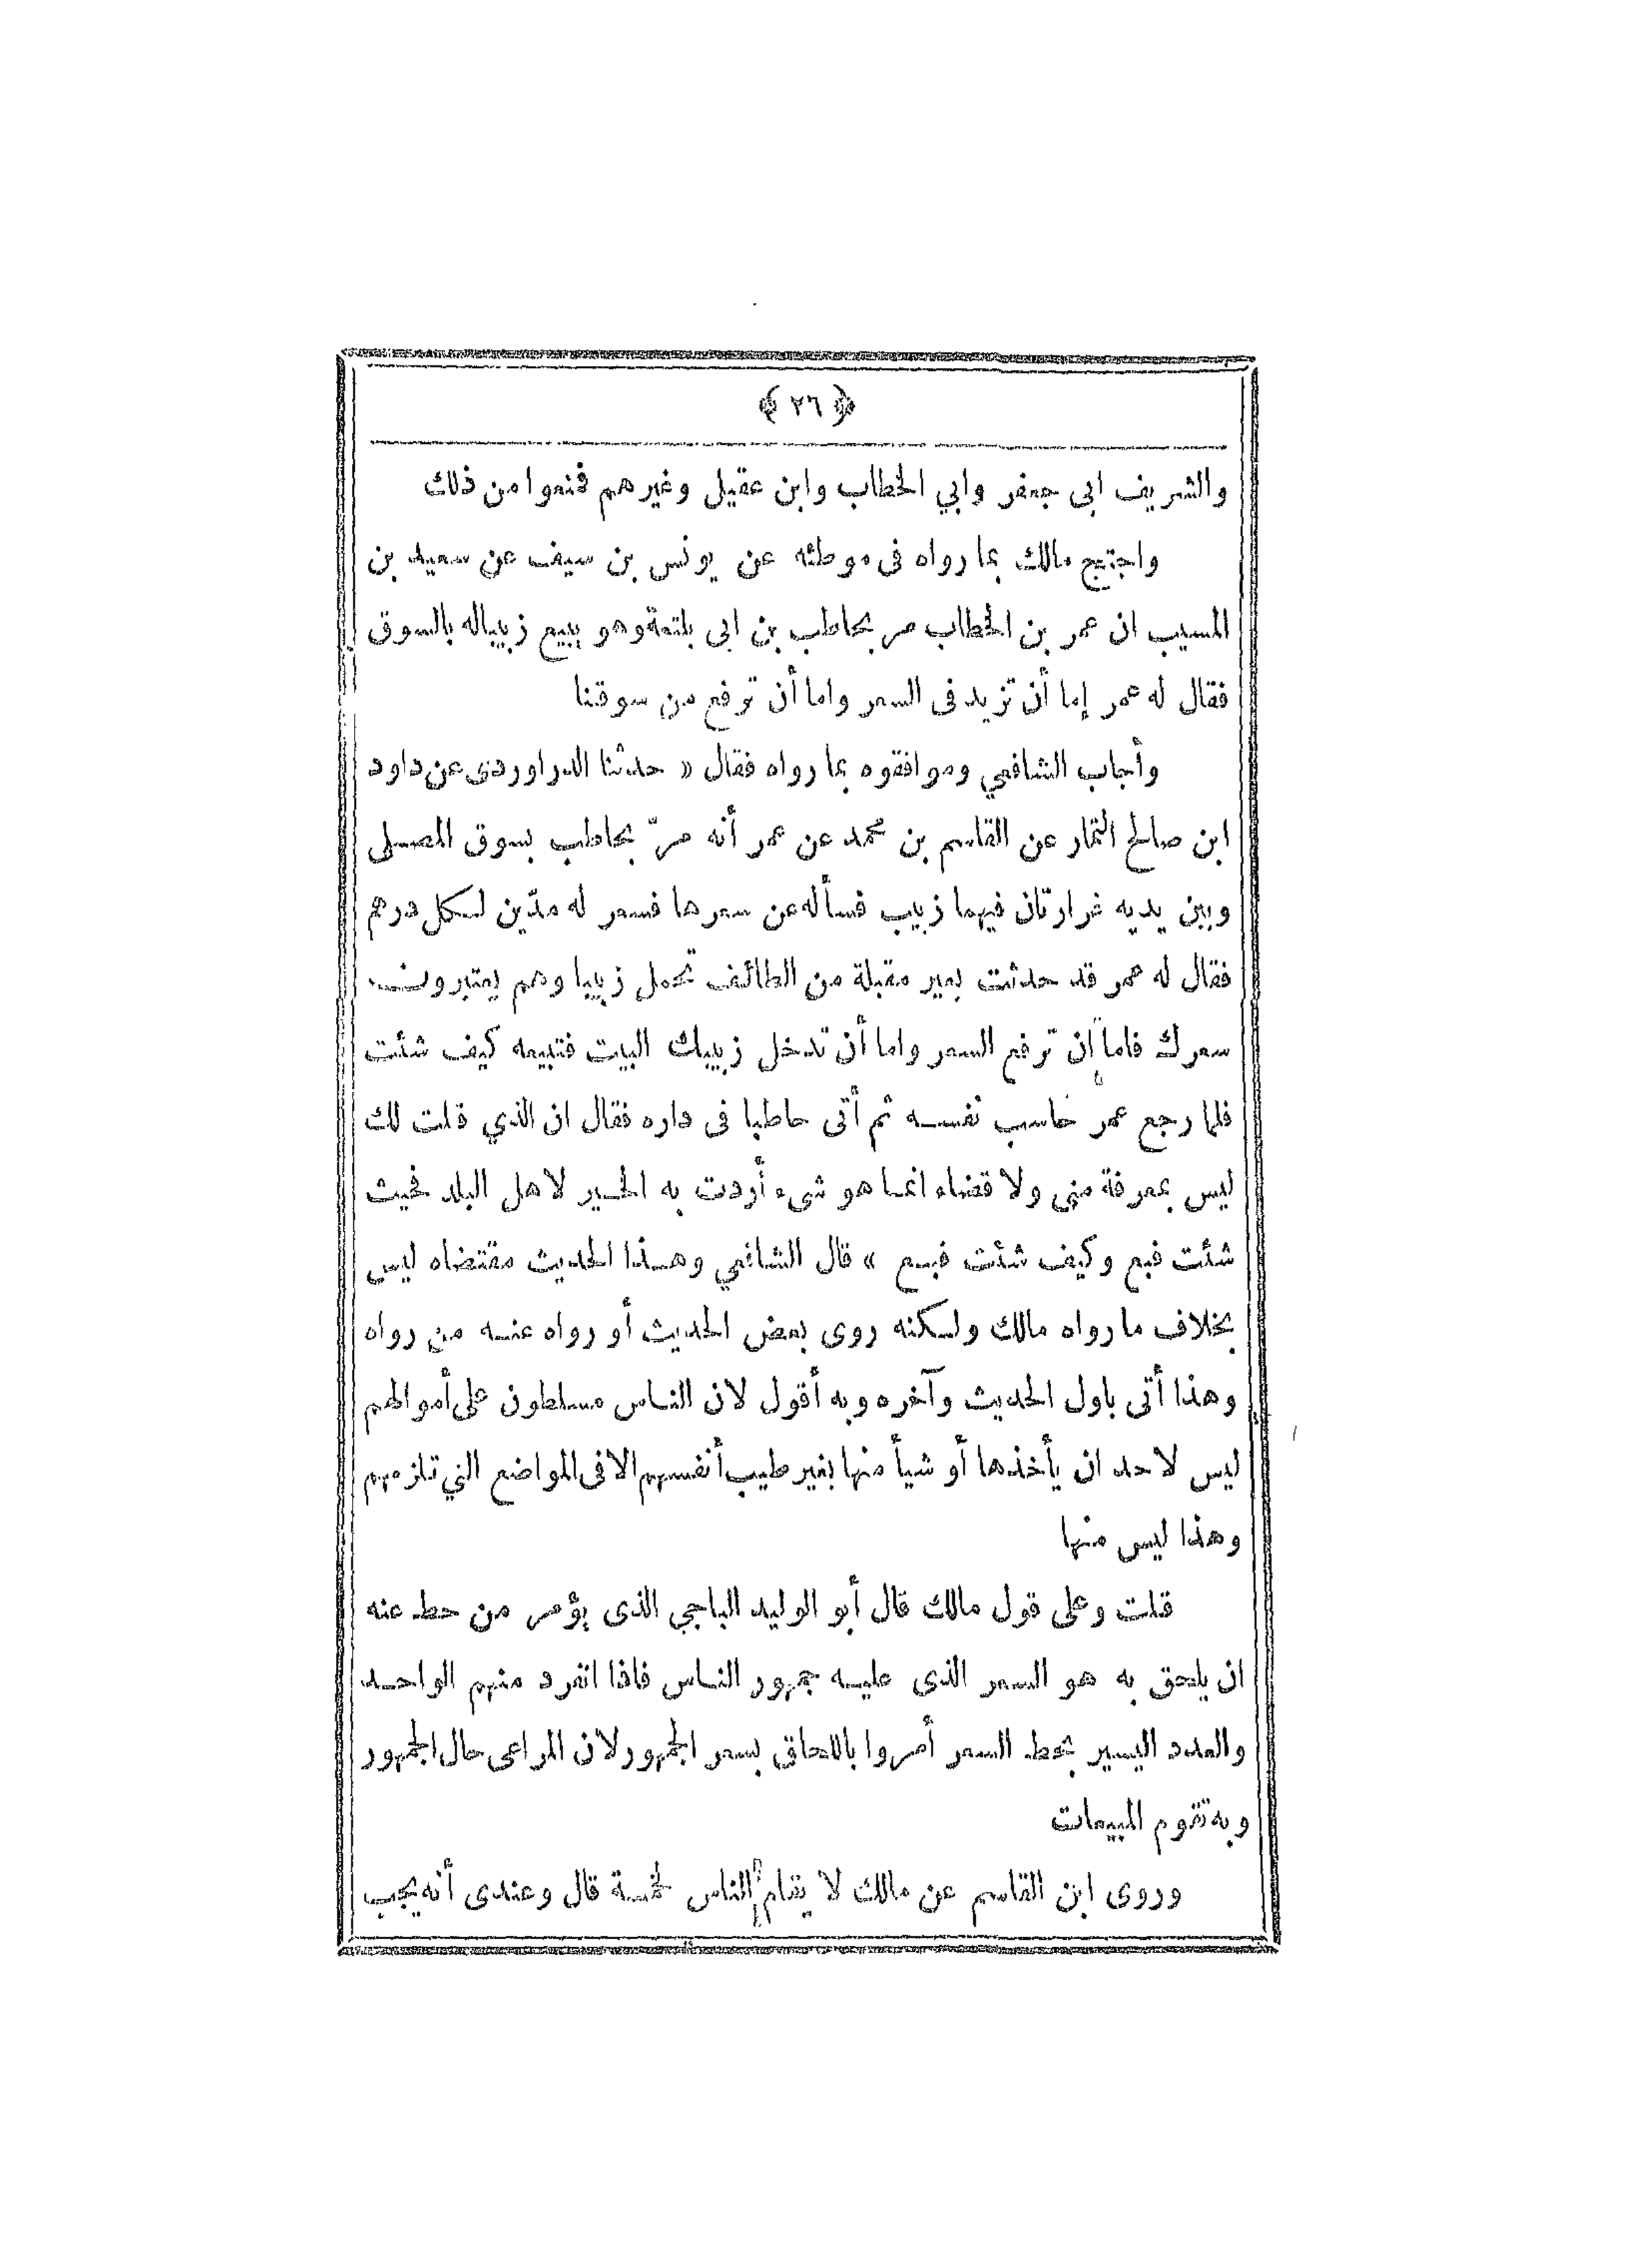 ﴿ ٢٦ ﴾
والشريف ابى جعفر وابي الخطاب وابن عقيل وغيرهم فمنعوا من ذلك
واحتج مالك بما رواه فى موطئه عن يونس بن سيف عن سعيد بن
المسيب ان عمر بن الخطاب مر بحاطب بن ابى بلتعة وهو يبيع زبيبا له بالسوق
فقال له عمر إما أن تزيد فى السعر واما أن ترفع من سوقنا
وأجاب الشافعي وموافقوه بما رواه فقال « حدثنا الدراوردى عن داود
ابن صالح التمار عن القاسم بن محمد عن عمر أنه مرّ بحاطب بسوق المصلى
وبين يديه غرارتان فيهما زبيب فسأله عن سعرها فسعر له مدّين لكل درهم
فقال له عمر قد حدثت بعير مقبلة من الطائف تحمل زبيبا وهم يعتبرون
سعرك فاما إن ترفع السعر واما أن تدخل زبيبك البيت فتبيعه كيف شئت
فلما رجع عمر حاسب نفسه ثم أتى حاطبا فى داره فقال ان الذي قلت لك
ليس بمعرفة منى ولا قضاء انما هو شىء أردت به الخير لاهل البلد فحيث
شئت فبع وكيف شئت فبع » قال الشافعي وهذا الحديث مقتضاه ليس
بخلاف ما رواه مالك ولكنه روى بعض الحديث أو رواه عنه من رواه
وهذا أتى باول الحديث وآخره وبه أقول لان الناس مسلطون على أموالهم
ليس لاحد ان يأخذها أو شيأ منها بغير طيب أنفسهم الا فى المواضع التي تلزمهم
وهذا ليس منها
قلت وعلى قول مالك قال أبو الوليد الباجي الذى يؤمر من حط عنه
ان يلحق به هو السعر الذى عليه جمهور الناس فاذا انفرد منهم الواحد
والعدد اليسير بحط السعر أمروا باللحاق بسعر الجمهور لان المراعى حال الجمهور
وبه تقوم المبيعات
وروى ابن القاسم عن مالك لا يقام الناس لخمسة قال وعندى أنه يجب